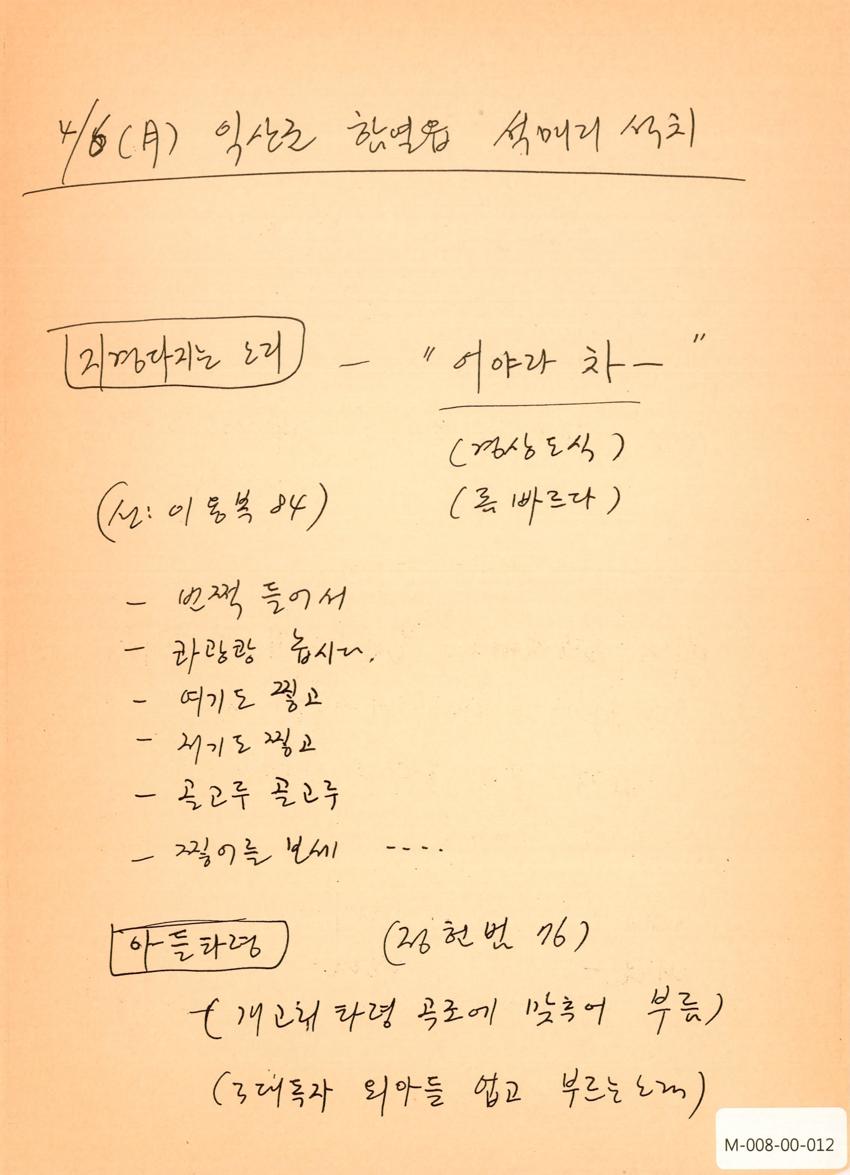 4/6 (月) 익산군 함열읍 석매리 석치
지경다지는 노래 — " 어야라 차 — "
(경상도식)
(선: 이동복 84) (좀 빠르다)
- 번쩍 들어서
- 콰광쾅 놉시다.
- 여기도 찧고
- 저기도 찧고
- 골고루 골고루
- 찧어를 보세 ....
아들타령 (정헌범 76)
(개고리타령 곡조에 맞추어 부름)
(3대독자 외아들 업고 부르는 노래)
M-008-00-012